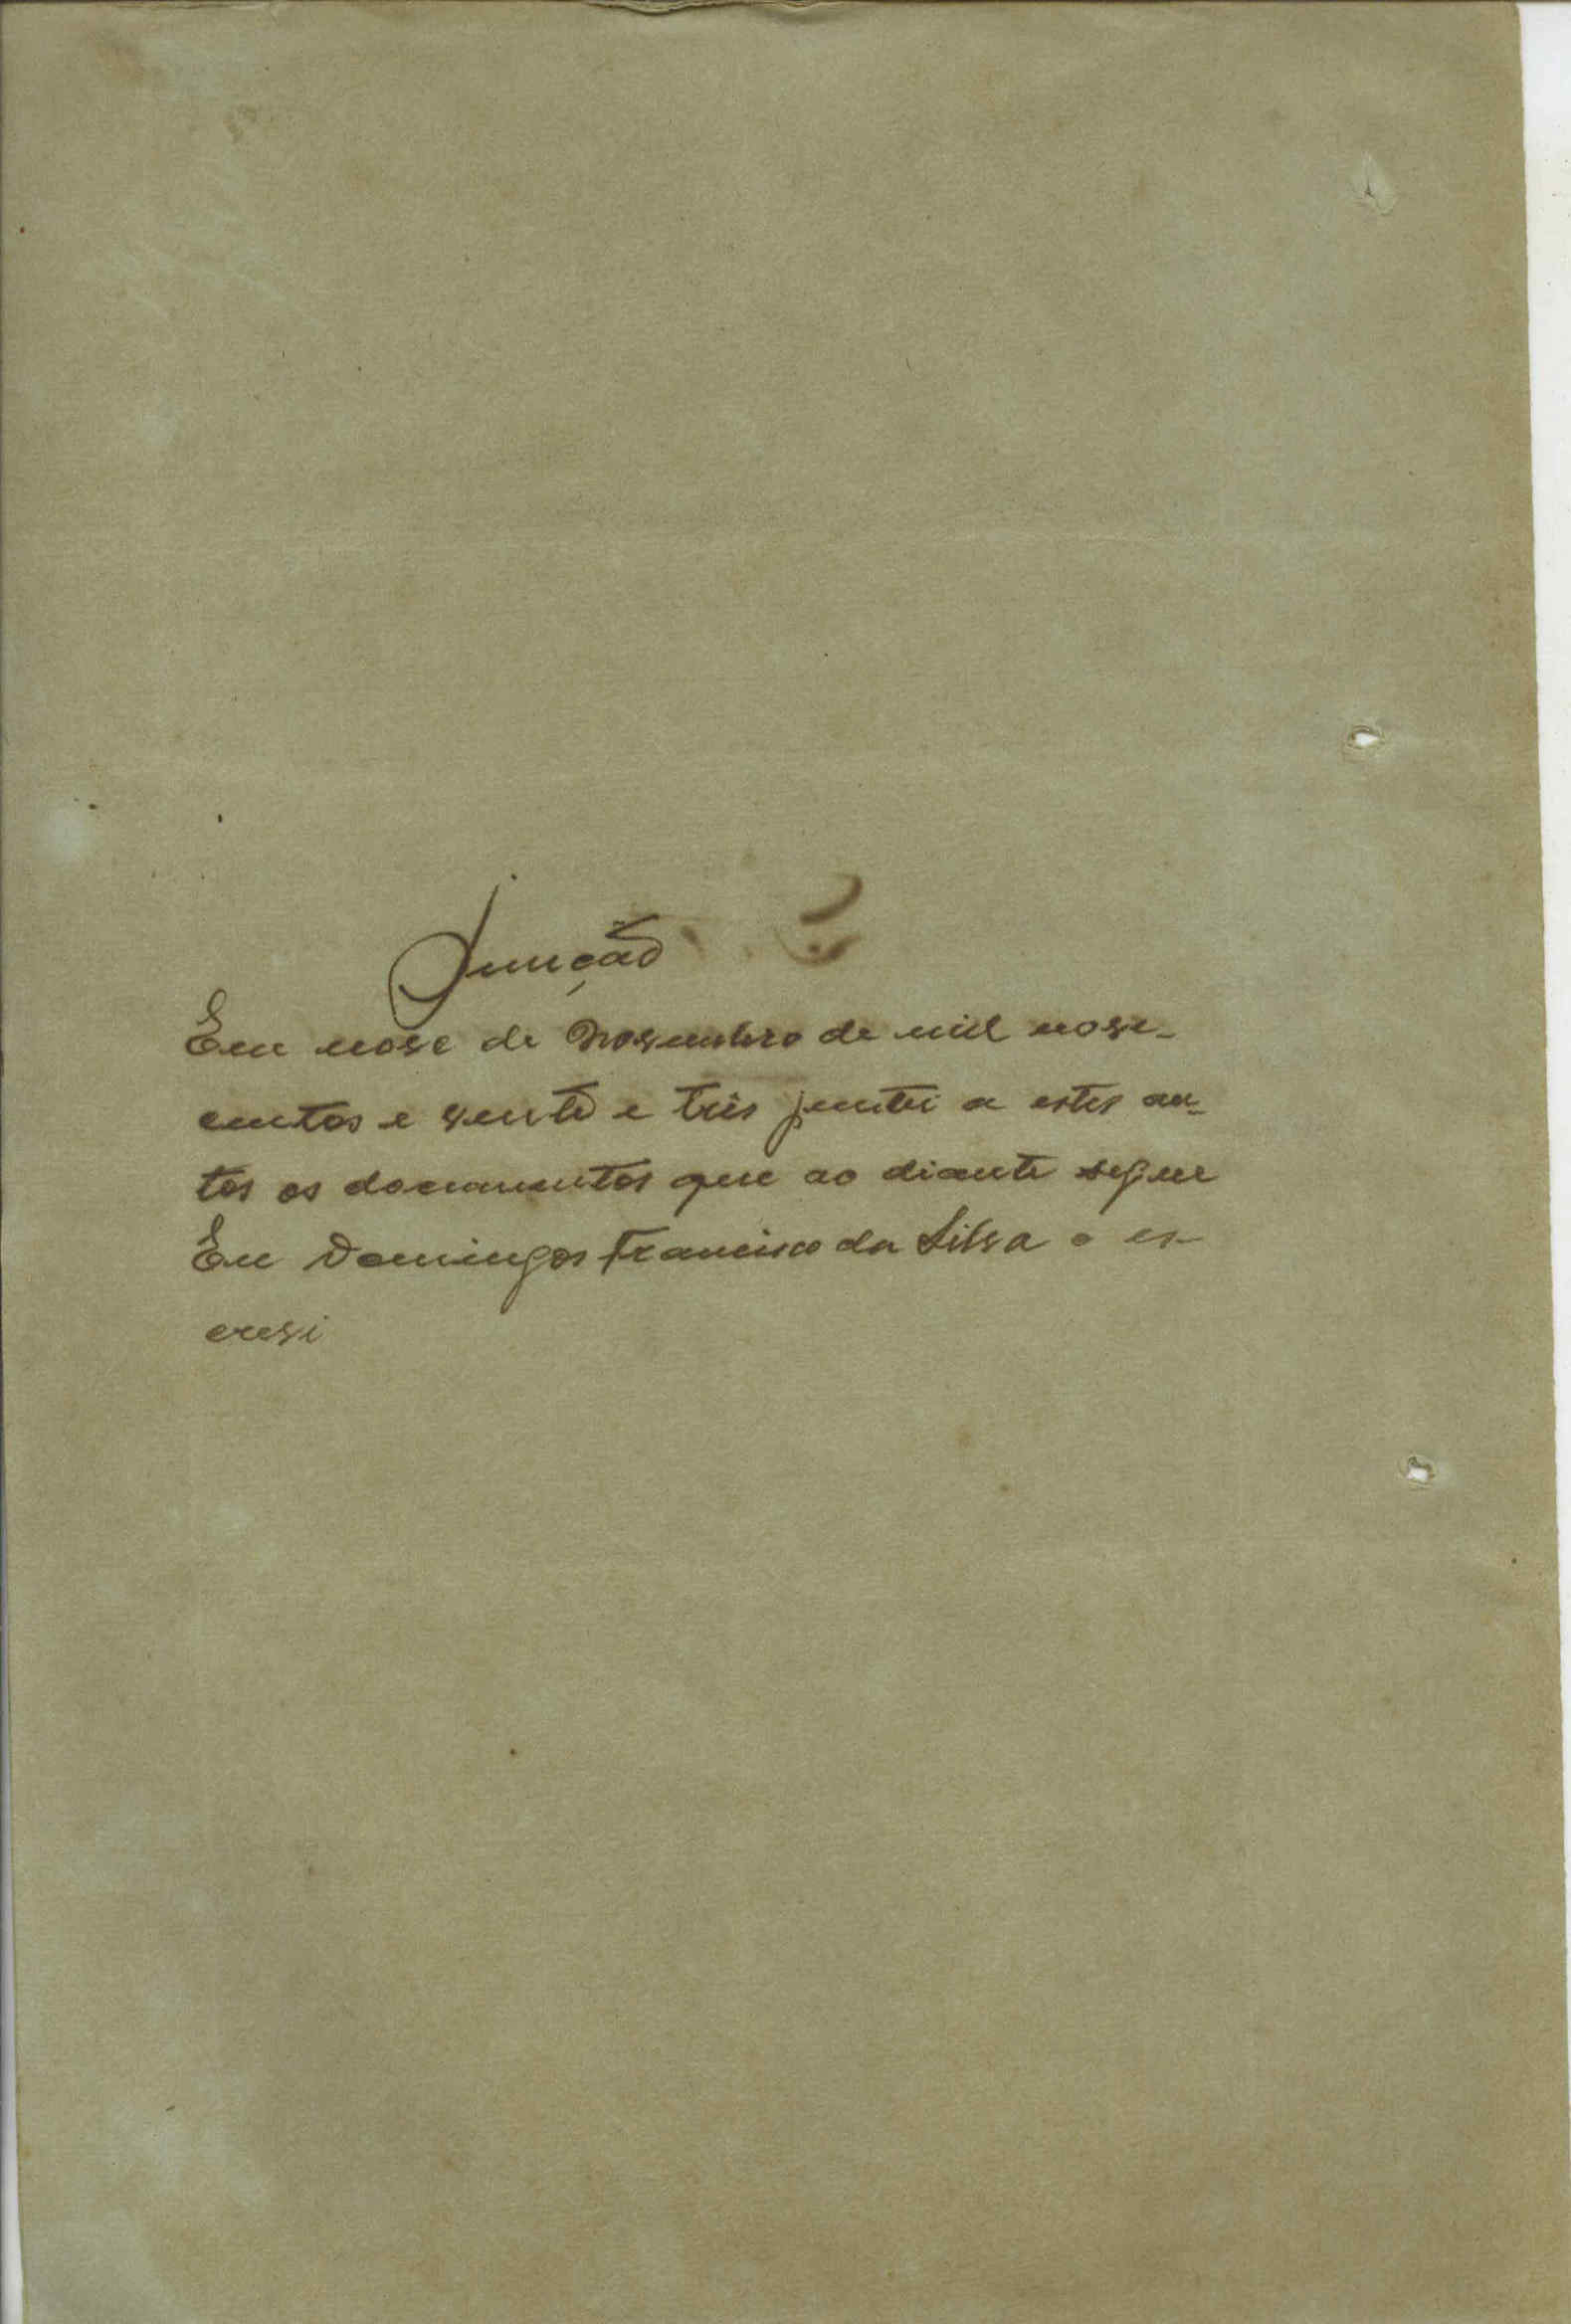 Junção
Em nove de Novembro de mil nove-
centos e vente e três juntei a estes au-
tos os documentos que ao diante segue
Eu Domingos Francisco da Silva o es-
crevi